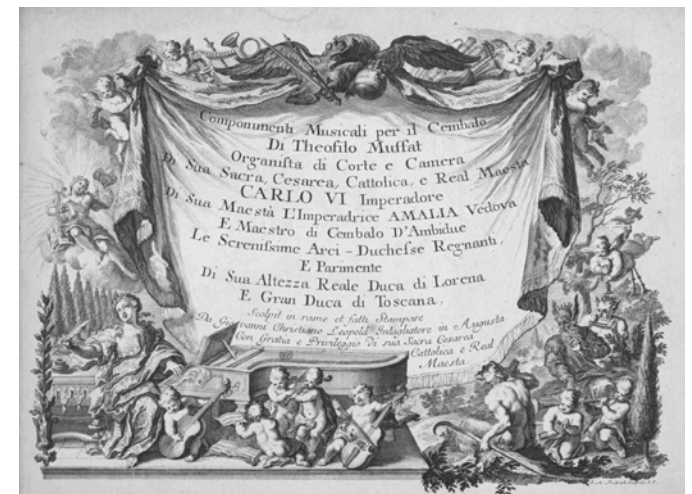 Componimenti Musicali per il Cembalo
Di Theofilo Muffat
Organista di Corte e Camera
Di Sua Sacra, Cesarea, Cattolica, e Real Maestà
CARLO VI Imperadore
Di Sua Maestà L'Imperadrice AMALIA Vedova
E Maestro di Cembalo D'Ambidue
Le Serenissime Arci-Duchesse Regnanti,
E Parimente
Di Sua Altezza Reale Duca di Lorena
E Gran Duca di Toscana,
Scolpit in rame et fatti Stampare
Da Giovanni Christiano Leopold Intagliatore in Augusta
Con Gratia e Privileggio di sua Sacra Cesarea
Cattolica e Real
Maestà